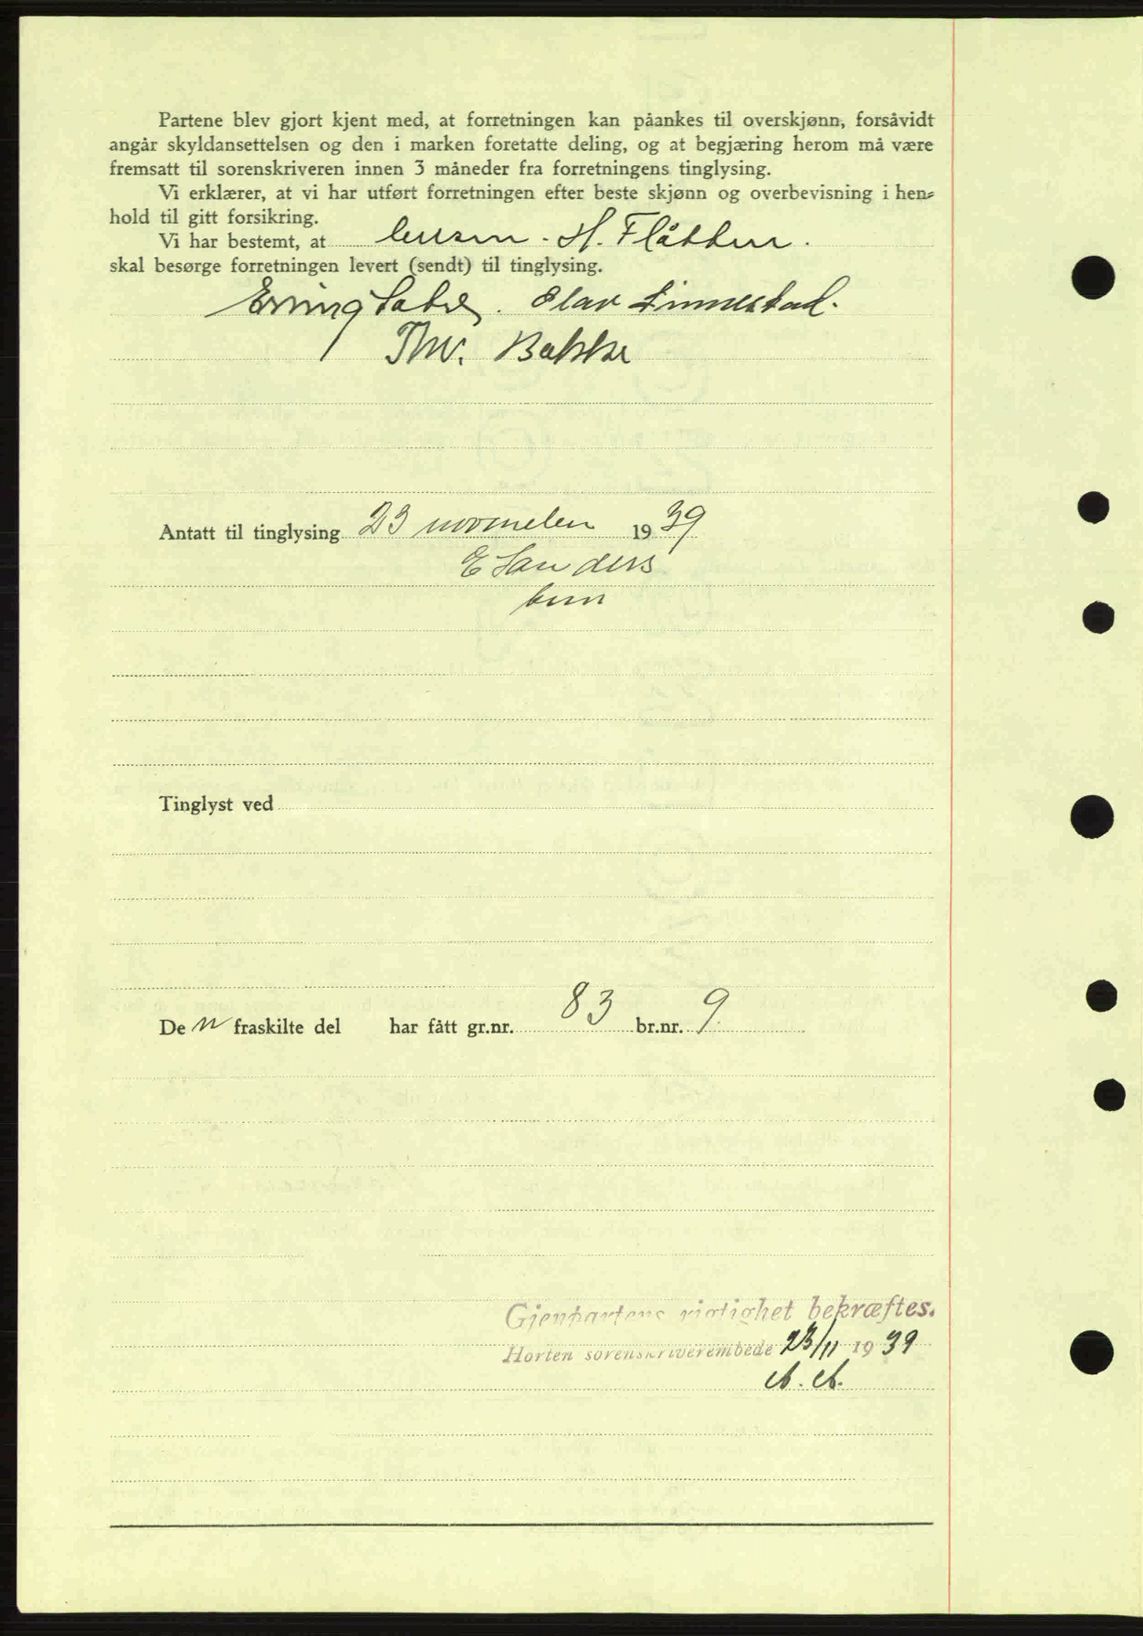 Partene blev gjort kjent med, at forretningen kan påankes til overskjønn, forsåvidt
angår skyldansettelsen og den i marken foretatte deling, og at begjæring herom må være
fremsatt til sorenskriveren innen 3 måneder fra forretningens tinglysing.
Vi erklærer, at vi har utført forretningen efter beste skjønn og overbevisning i hen-
hold til gitt forsikring.
Vi har bestemt, at H. Flåtten.
skal besørge forretningen levert (sendt) til tinglysing.
Erling Olav Linnestad.
Thv. Bakke
Antatt til tinglysing 23 november 1939
E Sanders
Tinglyst ved
De n fraskilte del har fått gr.nr. 83 br.nr. 9.
Gjenpartens rigtighet bekræftes.
Horten sorenskriverembede 23/11 1939